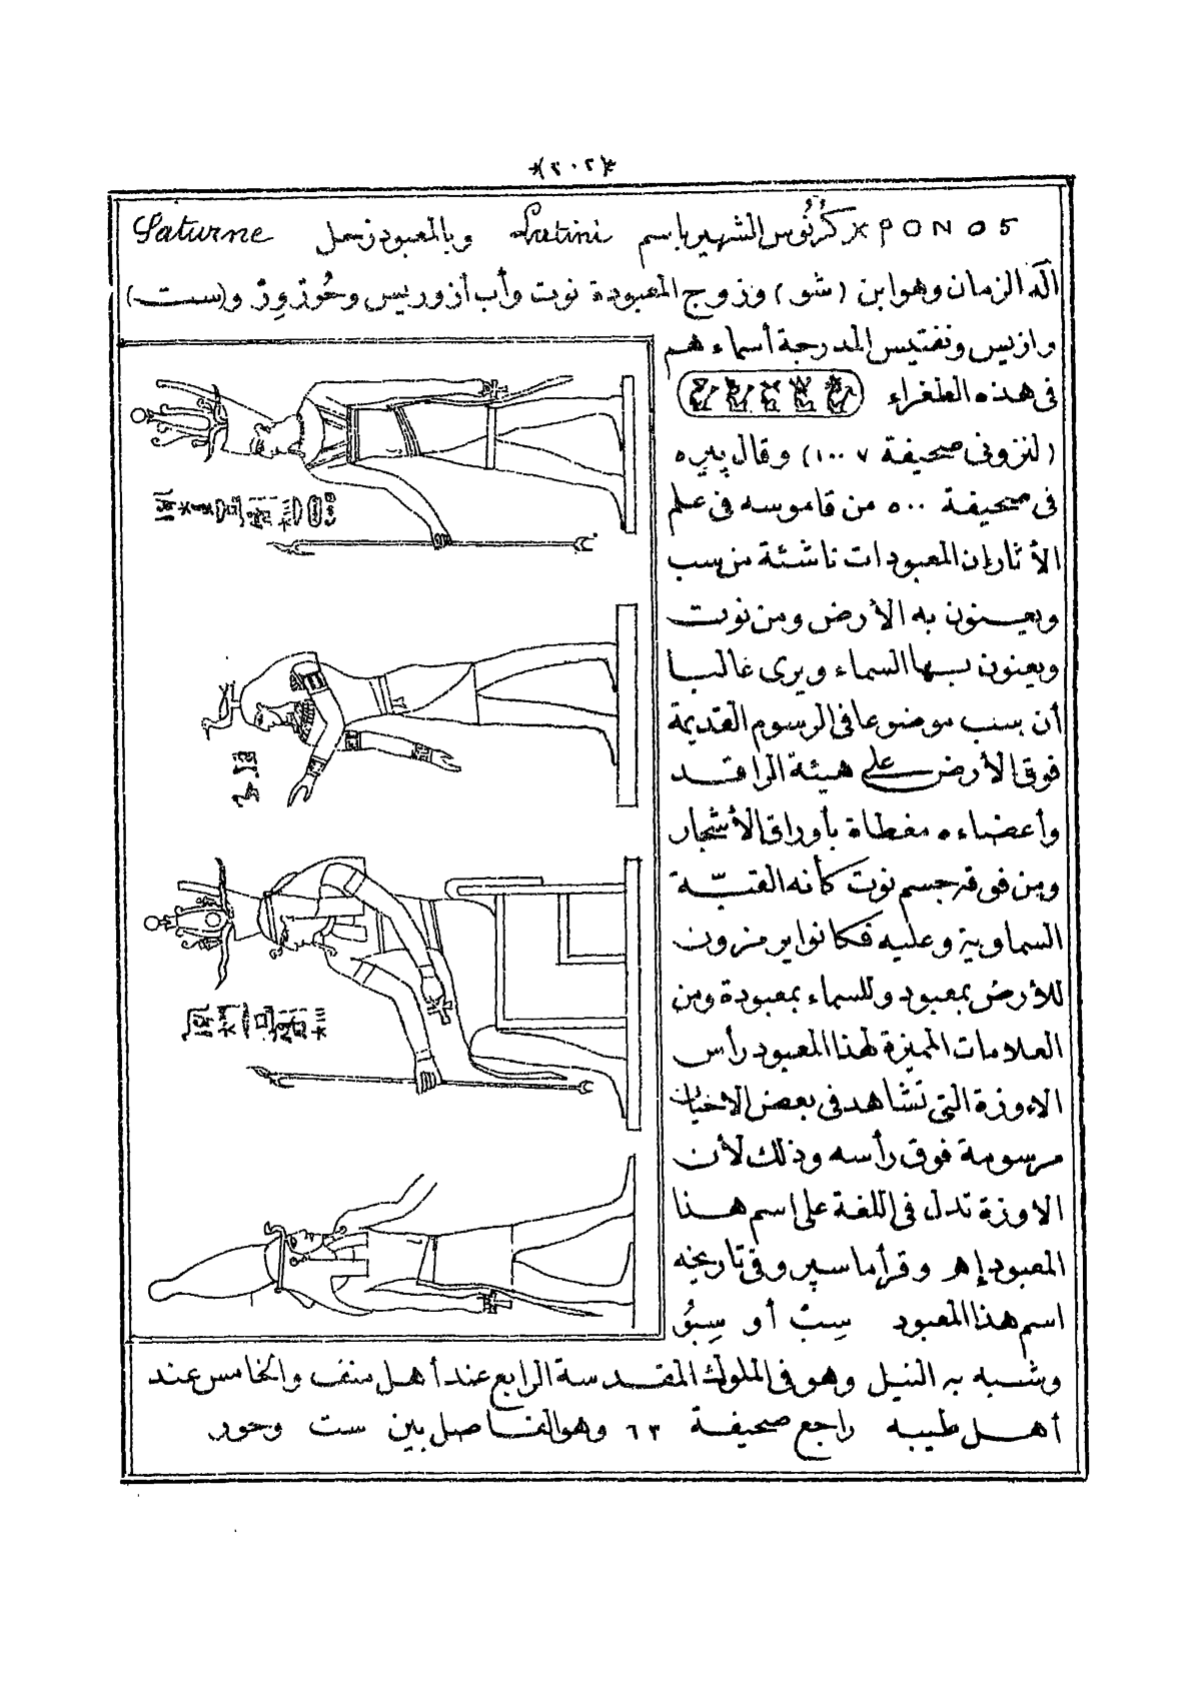 *(٢٠٢)*
ΧΡΟΝΟΣ كُرُنُوس الشهير باسم Satini وبالمعبود زحل Saturne
اله الزمان وهو ابن (شو) وزوج المعبودة نوت وأب أزوريس وحُوزْوِرْ و(ست)
وازيس ونفتيس المدرجة أسماءهم
فى هذه الطغراء
(لنزونى صحيفة ١٠٠٧) وقال پيره
فى صحيفة ٥٠٠ من قاموسه فى علم
الأثار إن المعبودات ناشئة من سب
ويعنون به الأرض ومن نوت
ويعنون بها السماء ويرى غالبا
أن سب موضوعا فى الرسوم القديمة
فوق الأرض على هيئة الراقد
وأعضاءه مغطاة بأوراق الأشجار
ومن فوقه جسم نوت كأنه القبّة
السماوية وعليه فكانوا يرمزون
للأرض بمعبود وللسماء بمعبودة ومن
العلامات المميزة لهذا المعبود رأس
الاوزة التى تشاهد فى بعض الاحيان
مرسومة فوق رأسه وذلك لأن
الاوزة تدل فى اللغة على اسم هذا
المعبود إهر وقرأ ماسپرو فى تاريخه
اسم هذا المعبود سِبْ أو سِبُو
وشبه به النيل وهو فى الملوك المقدسة الرابع عند أهل منف والخامس عند
أهل طيبه راجع صحيفة ٦٣ وهو الفاصل بين ست وحور